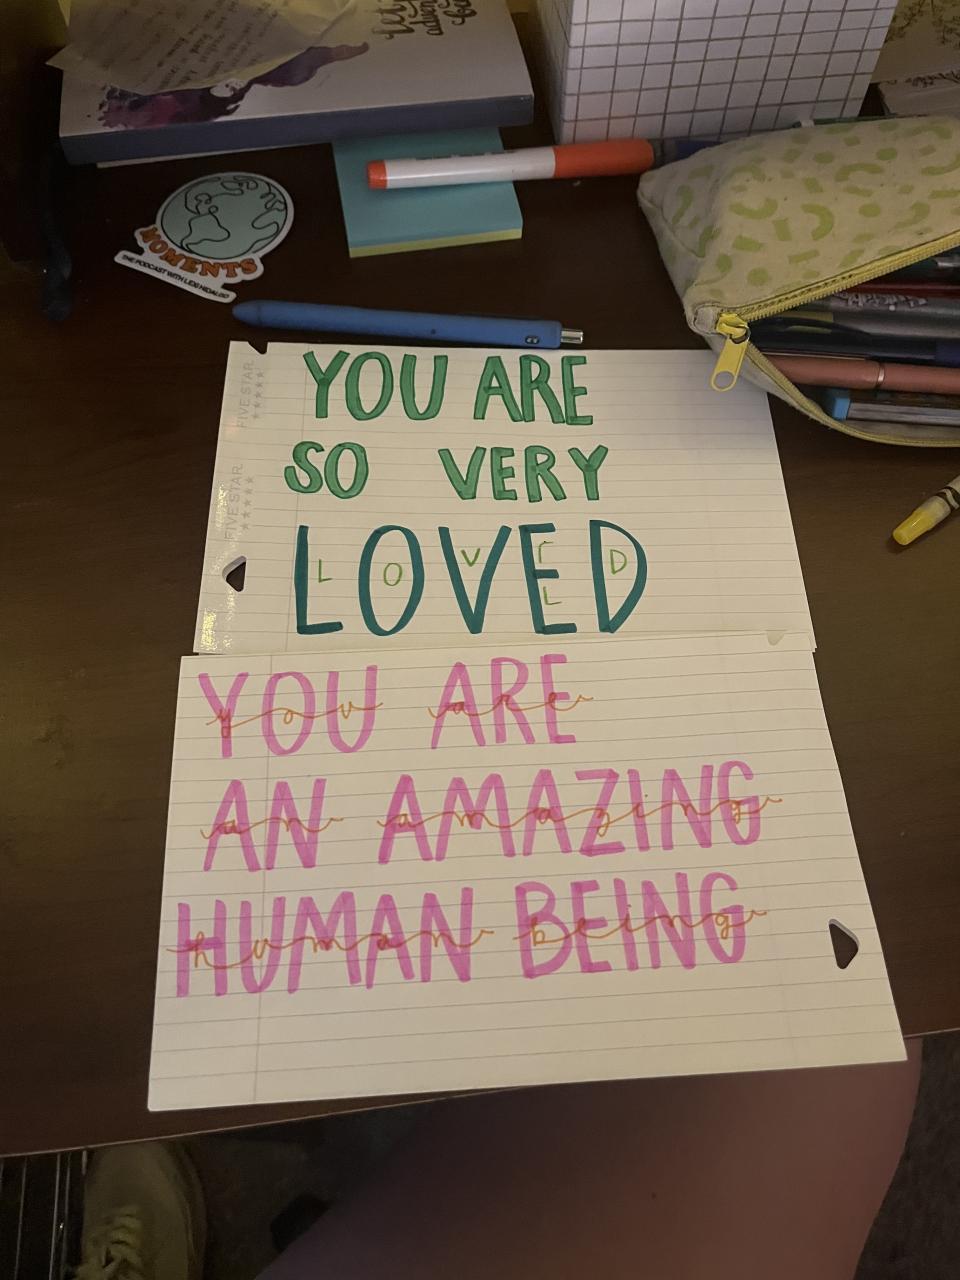 MOMENTS
THE PODCAST WITH LEXI HIDALGO
FIVE STAR
FIVE STAR
YOU ARE
SO VERY
LOVED
L O V E D
YOU ARE
you are
AN AMAZING
an amazing
HUMAN BEING
human being